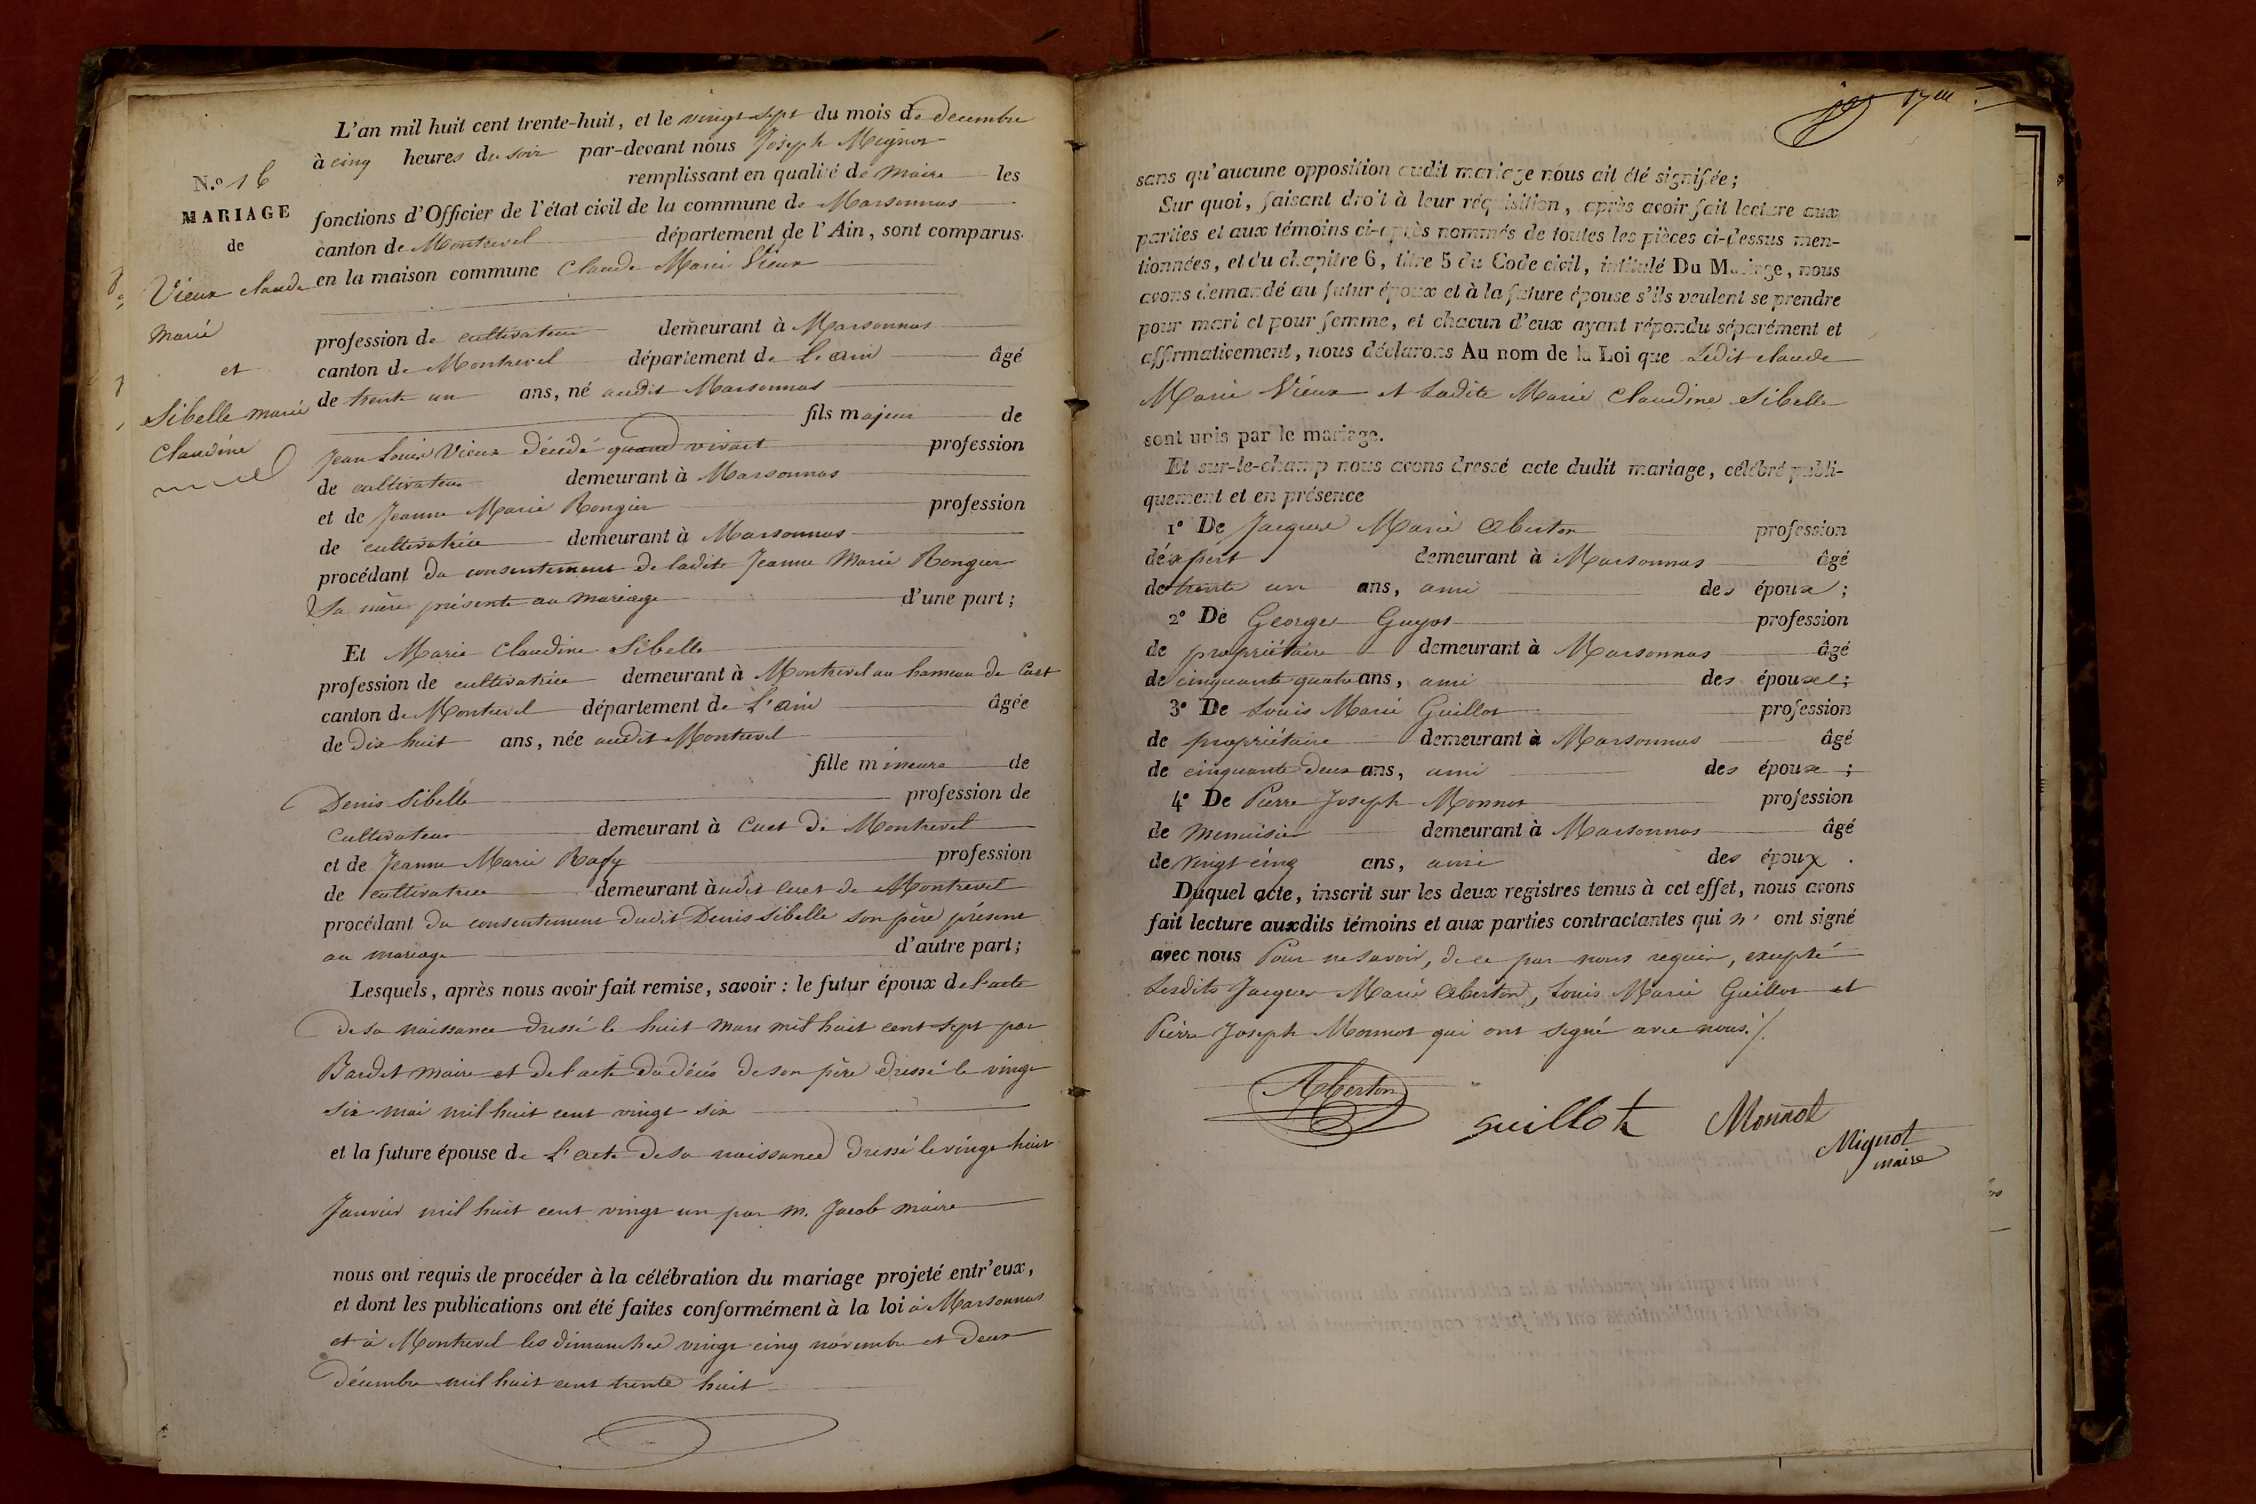 L'an mil huit cent trente-huit, et le vingt sept du mois de decembre
à cinq heures du soir par-devant nous Joseph Mignot
remplissant en qualité de maire les
fonctions d'Officier de l'état civil de la commune de Marsonnas
canton de Montrevel département de l'Ain, sont comparus
en la maison commune Claude Marie Vieux
N.o 16
MARIAGE
de
Vieux claude
marie
et
Sibelle marie
claudine
profession de cultivateur demeurant à Marsonnas
canton de Montrevel département de L'ain âgé
de trente un ans, né audit Marsonnas
fils majeur de
Jean Louis Vieux décédé quand vivait profession
de cultivateur demeurant à Marsonnas
et de Jeanne Marie Rongier profession
de cultivatrice demeurant à Marsonnas
procédant du consentement de ladite Jeanne Marie Rongier
Sa mère présente au mariage d'une part;
Et Marie Claudine Sibelle
profession de cultivatrice demeurant à Montrevel au hameau de Cuet
canton de Montrevel département de L'ain âgée
de dix huit ans, née audit Montrevel
fille mineure de
Denis Sibelle profession de
cultivateur demeurant à Cuet de Montrevel
et de Jeanne Marie Rafy profession
de cultivatrice demeurant àudit Cuet de Montrevel
procédant du consentement dudit Denis Sibelle son père présent
au mariage d'autre part;
Lesquels, après nous avoir fait remise, savoir: le futur époux de l'acte
de sa naissance dressé le huit mars mil huit cent sept par
Bardet maire et de l'acte du décés de son père dressé le vingt
six mai mil huit cent vingt six
et la future épouse de L'acte de sa naissance dressé le vingt huit
Janvier mil huit cent vingt un par m. Jacob maire
nous ont requis de procéder à la célébration du mariage projeté entr'eux,
et dont les publications ont été faites conformément à la loi à Marsonnas
et à Montrevel les dimanches vingt cinq novembre et deux
décembre mil huit cent trente huit
sans qu'aucune opposition audit mariage nous ait été signifiée;
Sur quoi, faisant droit à leur réquisition, après avoir fait lecture aux
parties et aux témoins ci-après nommés de toutes les pièces ci-dessus men-
tionnées, et du chapitre 6, titre 5 du Code civil, intitulé Du Mariage, nous
avons demandé au futur époux et à la future épouse s'ils veulent se prendre
pour mari et pour femme, et chacun d'eux ayant répondu séparément et
affirmativement, nous déclarons Au nom de la Loi que Ledit claude
Marie Vieux et Ladite Marie Claudine Sibelle
sont unis par le mariage.
Et sur-le-champ nous avons dressé acte dudit mariage, célébré publi-
quement et en présence
1º De Jacques Marie Aberton profession
d'éxpert demeurant à Marsonnas âgé
de trente un ans, ami des époux;
2º De Georges Guyot profession
de propriétaire demeurant à Marsonnas âgé
de cinquante quatre ans, ami des époux;
3º De Louis Marie Guillot profession
de propriétaire demeurant à Marsonnas âgé
de cinquante deux ans, ami des époux;
4º De Pierre Joseph Monnot profession
de menuisier demeurant à Marsonnas âgé
de vingt cinq ans, ami des époux.
Duquel acte, inscrit sur les deux registres tenus à cet effet, nous avons
fait lecture auxdits témoins et aux parties contractantes qui n' ont signé
avec nous Pour ne savoir, de ce par nous requis, excepté
Lesdits Jacques Marie Aberton, Louis Marie Guillot et
Pierre Joseph Monnot qui ont signé avec nous./.
Aberton
Guillot
Monnot
Mignot
maire